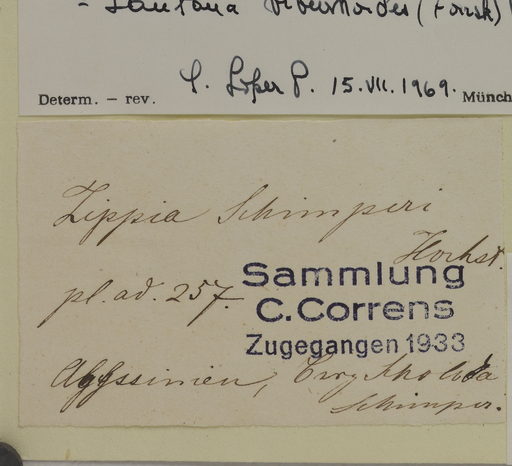 - Lantana viburnoides (Forsk)
15.VII.1969.
Determ. – rev. Münch
Lippia Schimperi
Hochst.
pl. ad. 257.
Sammlung
C. Correns
Zugegangen 1933
Abyssinien,
Schimper.